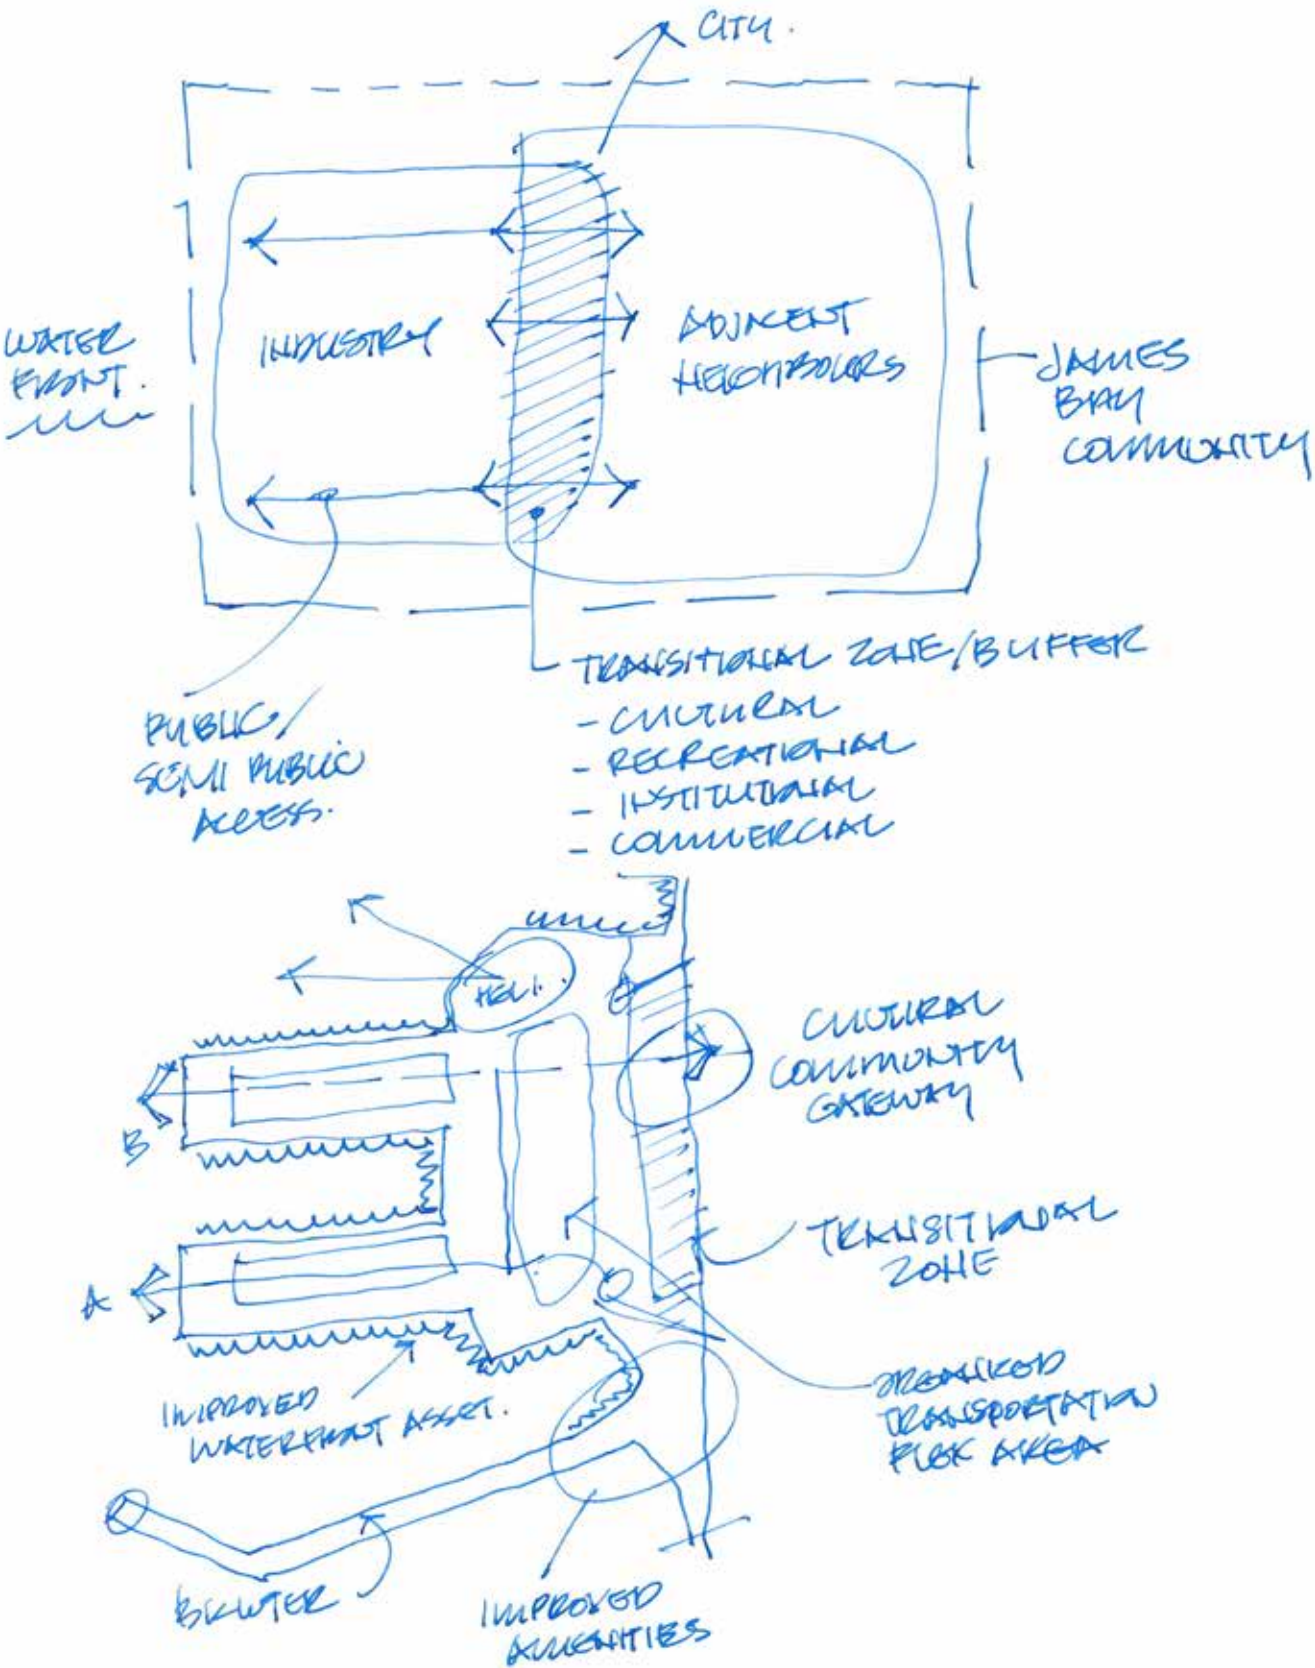 CITY.
WATER
FRONT.
INDUSTRY
ADJACENT
NEIGHBOURS
JAMES
BAY
COMMUNITY
TRANSITIONAL ZONE/BUFFER
- CULTURAL
- RECREATIONAL
- INSTITUTIONAL
- COMMERCIAL
PUBLIC/
SEMI PUBLIC
ACCESS.
HELI.
CULTURAL
COMMUNITY
GATEWAY
B
TRANSITIONAL
ZONE
A
IMPROVED
WATERFRONT ASSET.
ORGANIZED
TRANSPORTATION
FLEX AREA
BKWTER
IMPROVED
AMENITIES